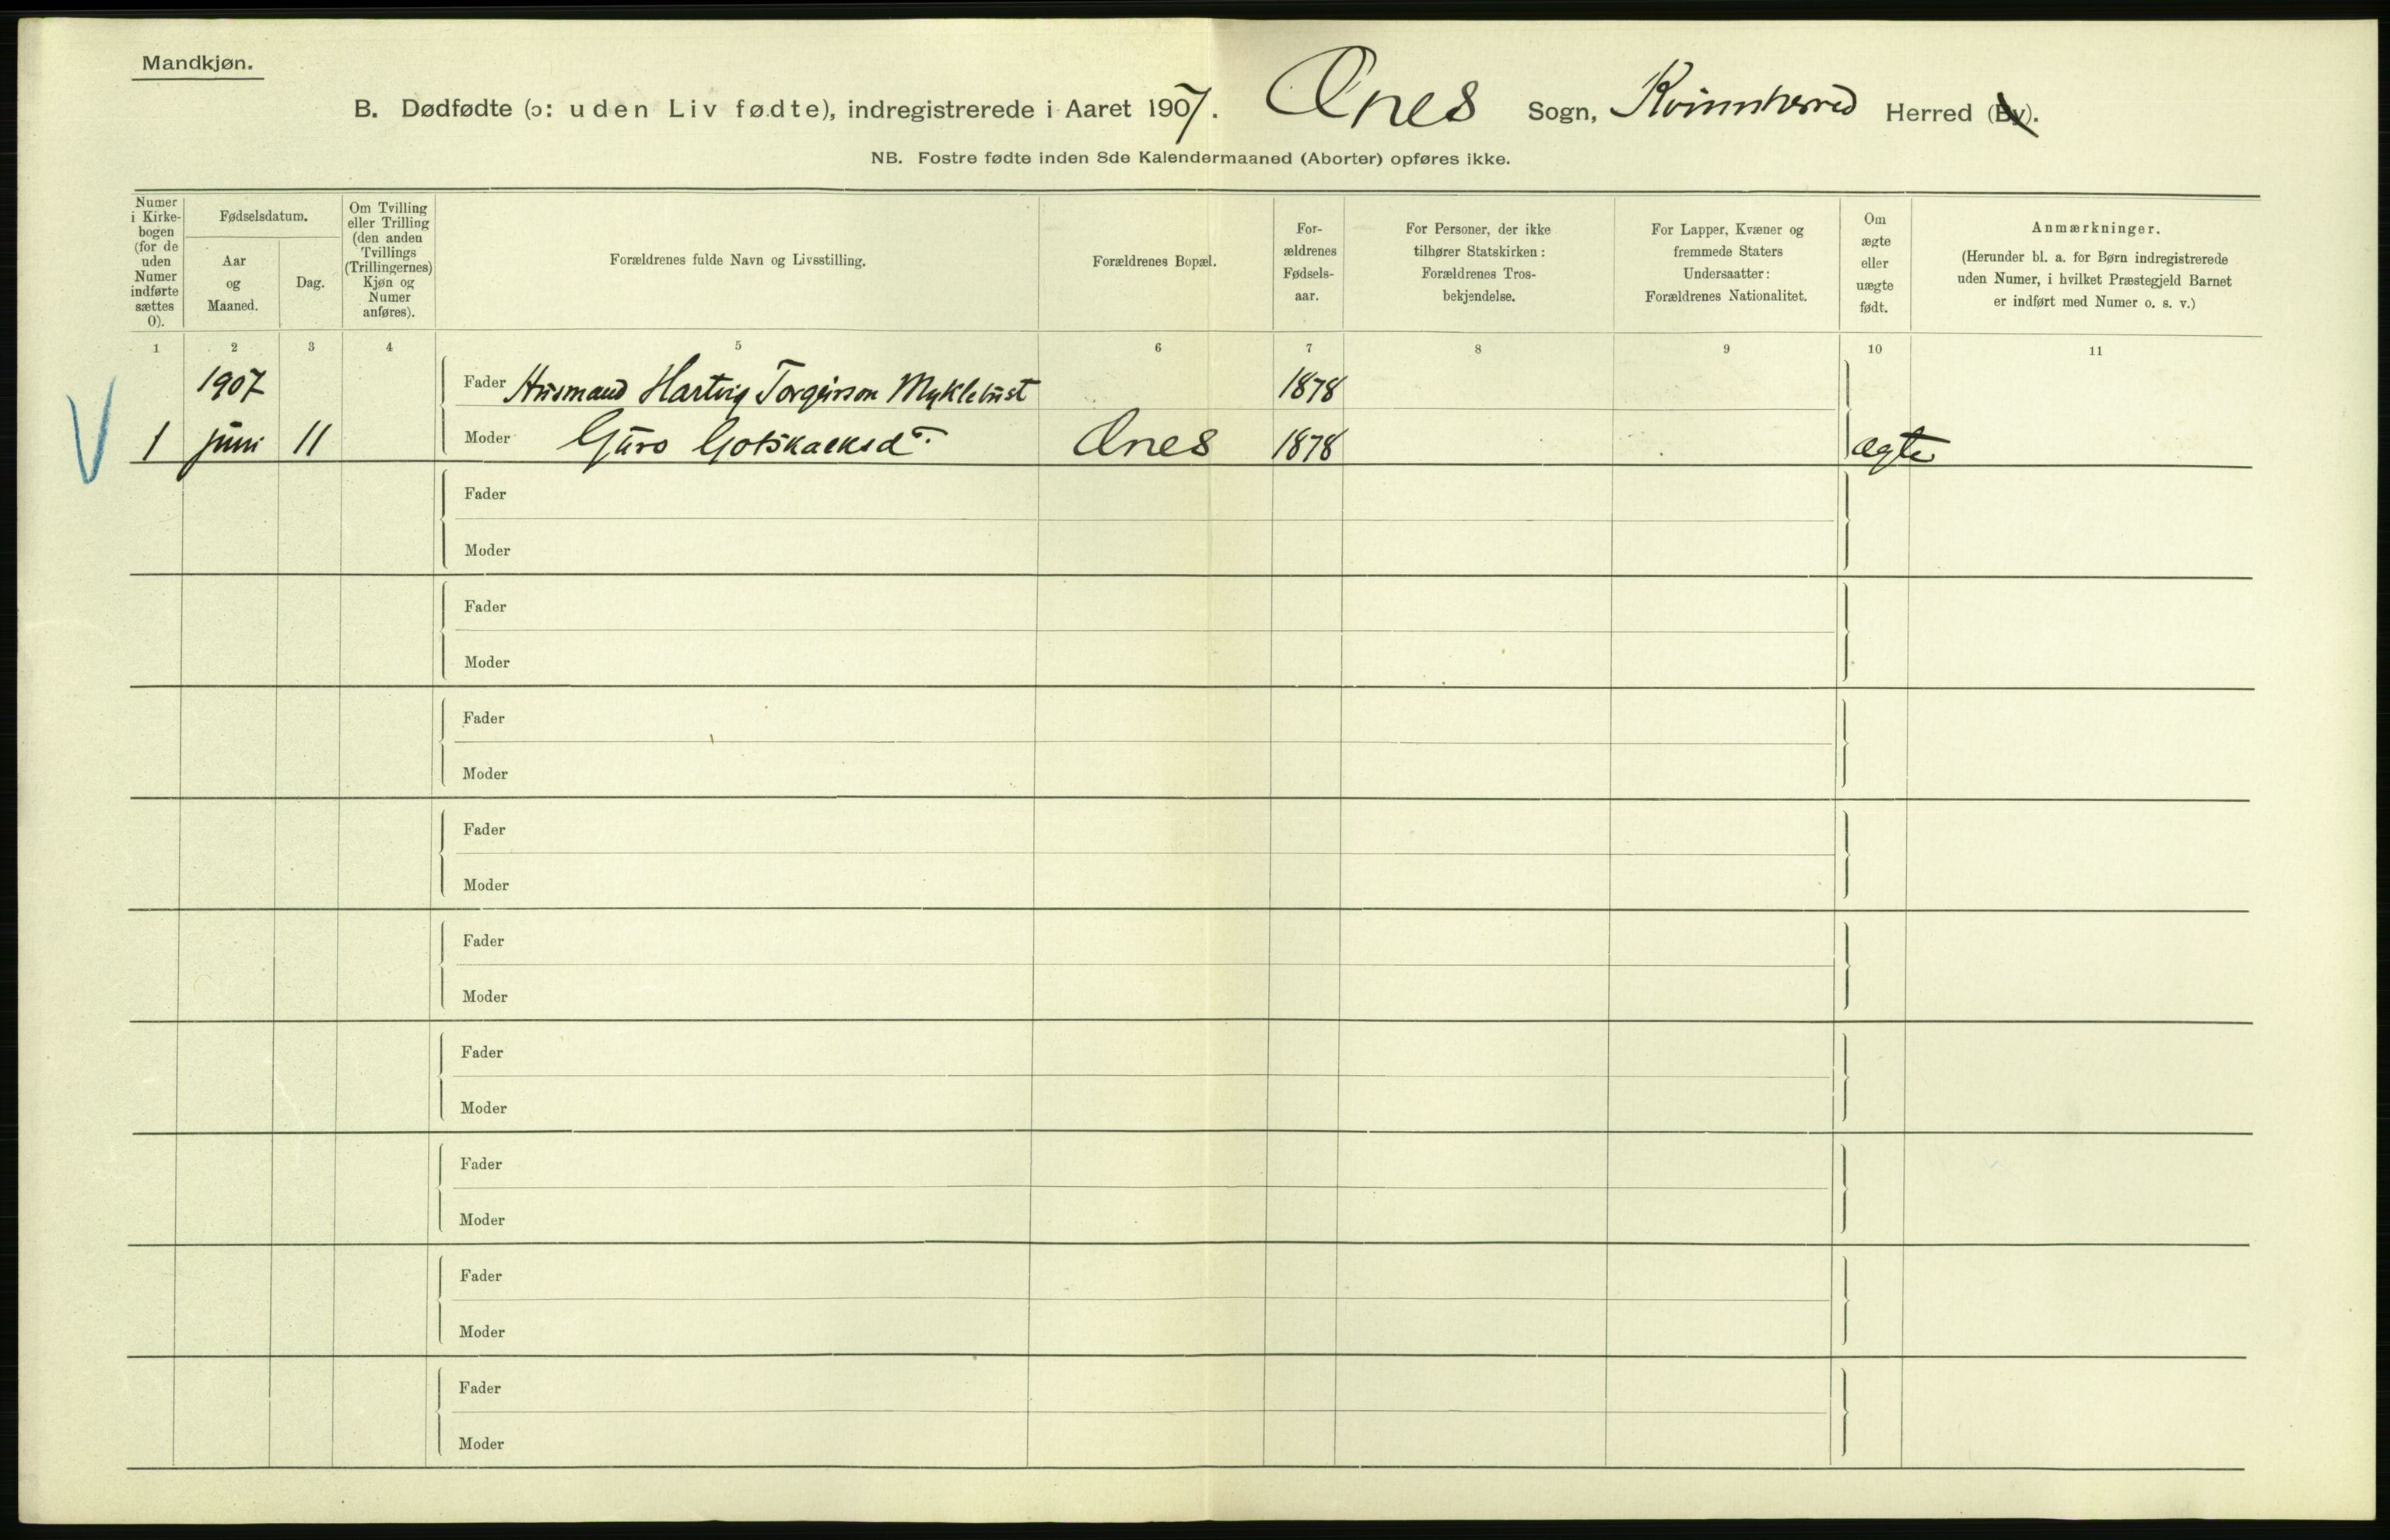 Mandkjøn.
B. Dødfødte (ɔ: uden Liv fødte), indregistrerede i Aaret 1907. Ænes Sogn, Kvinnherred Herred (By).
NB. Fostre fødte inden 8de Kalendermaaned (Aborter) opføres ikke.
Numer i Kirkebogen (for de uden Numer indførte sættes 0).
Fødselsdatum.
Aar og Maaned.
Dag.
Om Tvilling eller Trilling (den anden Tvillings (Trillingernes) Kjøn og Numer anføres).
Forældrenes fulde Navn og Livsstilling.
Forældrenes Bopæl.
For-
ældrenes
Fødsels-
aar.
For Personer, der ikke
tilhører Statskirken:
Forældrenes Tros-
bekjendelse.
For Lapper, Kvæner og
fremmede Staters
Undersaatter:
Forældrenes Nationalitet.
Om
ægte
eller
uægte
født.
Anmærkninger.
(Herunder bl. a. for Børn indregistrerede
uden Numer, i hvilket Præstegjeld Barnet
er indført med Numer o. s. v.)
1 2 3 4 5 6 7 8 9 10 11
1907 Fader Husmand Hartvig Torgeirson Myklebust 1878
1 juni 11 Moder Guro Gotskalksd. Ænes 1878 ægte
Fader
Moder
Fader
Moder
Fader
Moder
Fader
Moder
Fader
Moder
Fader
Moder
Fader
Moder
Fader
Moder
Fader
Moder